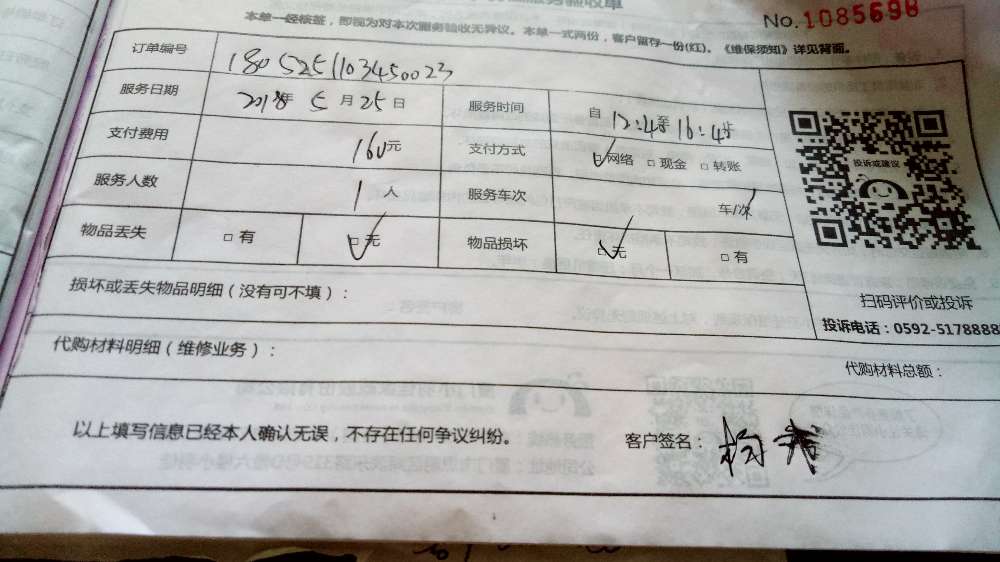 服务验收单
No.1085698
本单一经核签，即视为对本次服务验收无异议。本单一式两份，客户留存一份(红)。《维保须知》详见背面。
订单编号 1805251103450023
服务日期 2018年 5月25日 服务时间 自 12:4 至 16:4
支付费用 160元 支付方式 □网络 □现金 □转账
服务人数 1人 服务车次 车/次
物品丢失 □有 □无 物品损坏 □无 □有
投诉或建议
损坏或丢失物品明细（没有可不填）：
扫码评价或投诉
投诉电话：0592-5178888
代购材料明细（维修业务）：
代购材料总额：
以上填写信息已经本人确认无误，不存在任何争议纠纷。 客户签名：